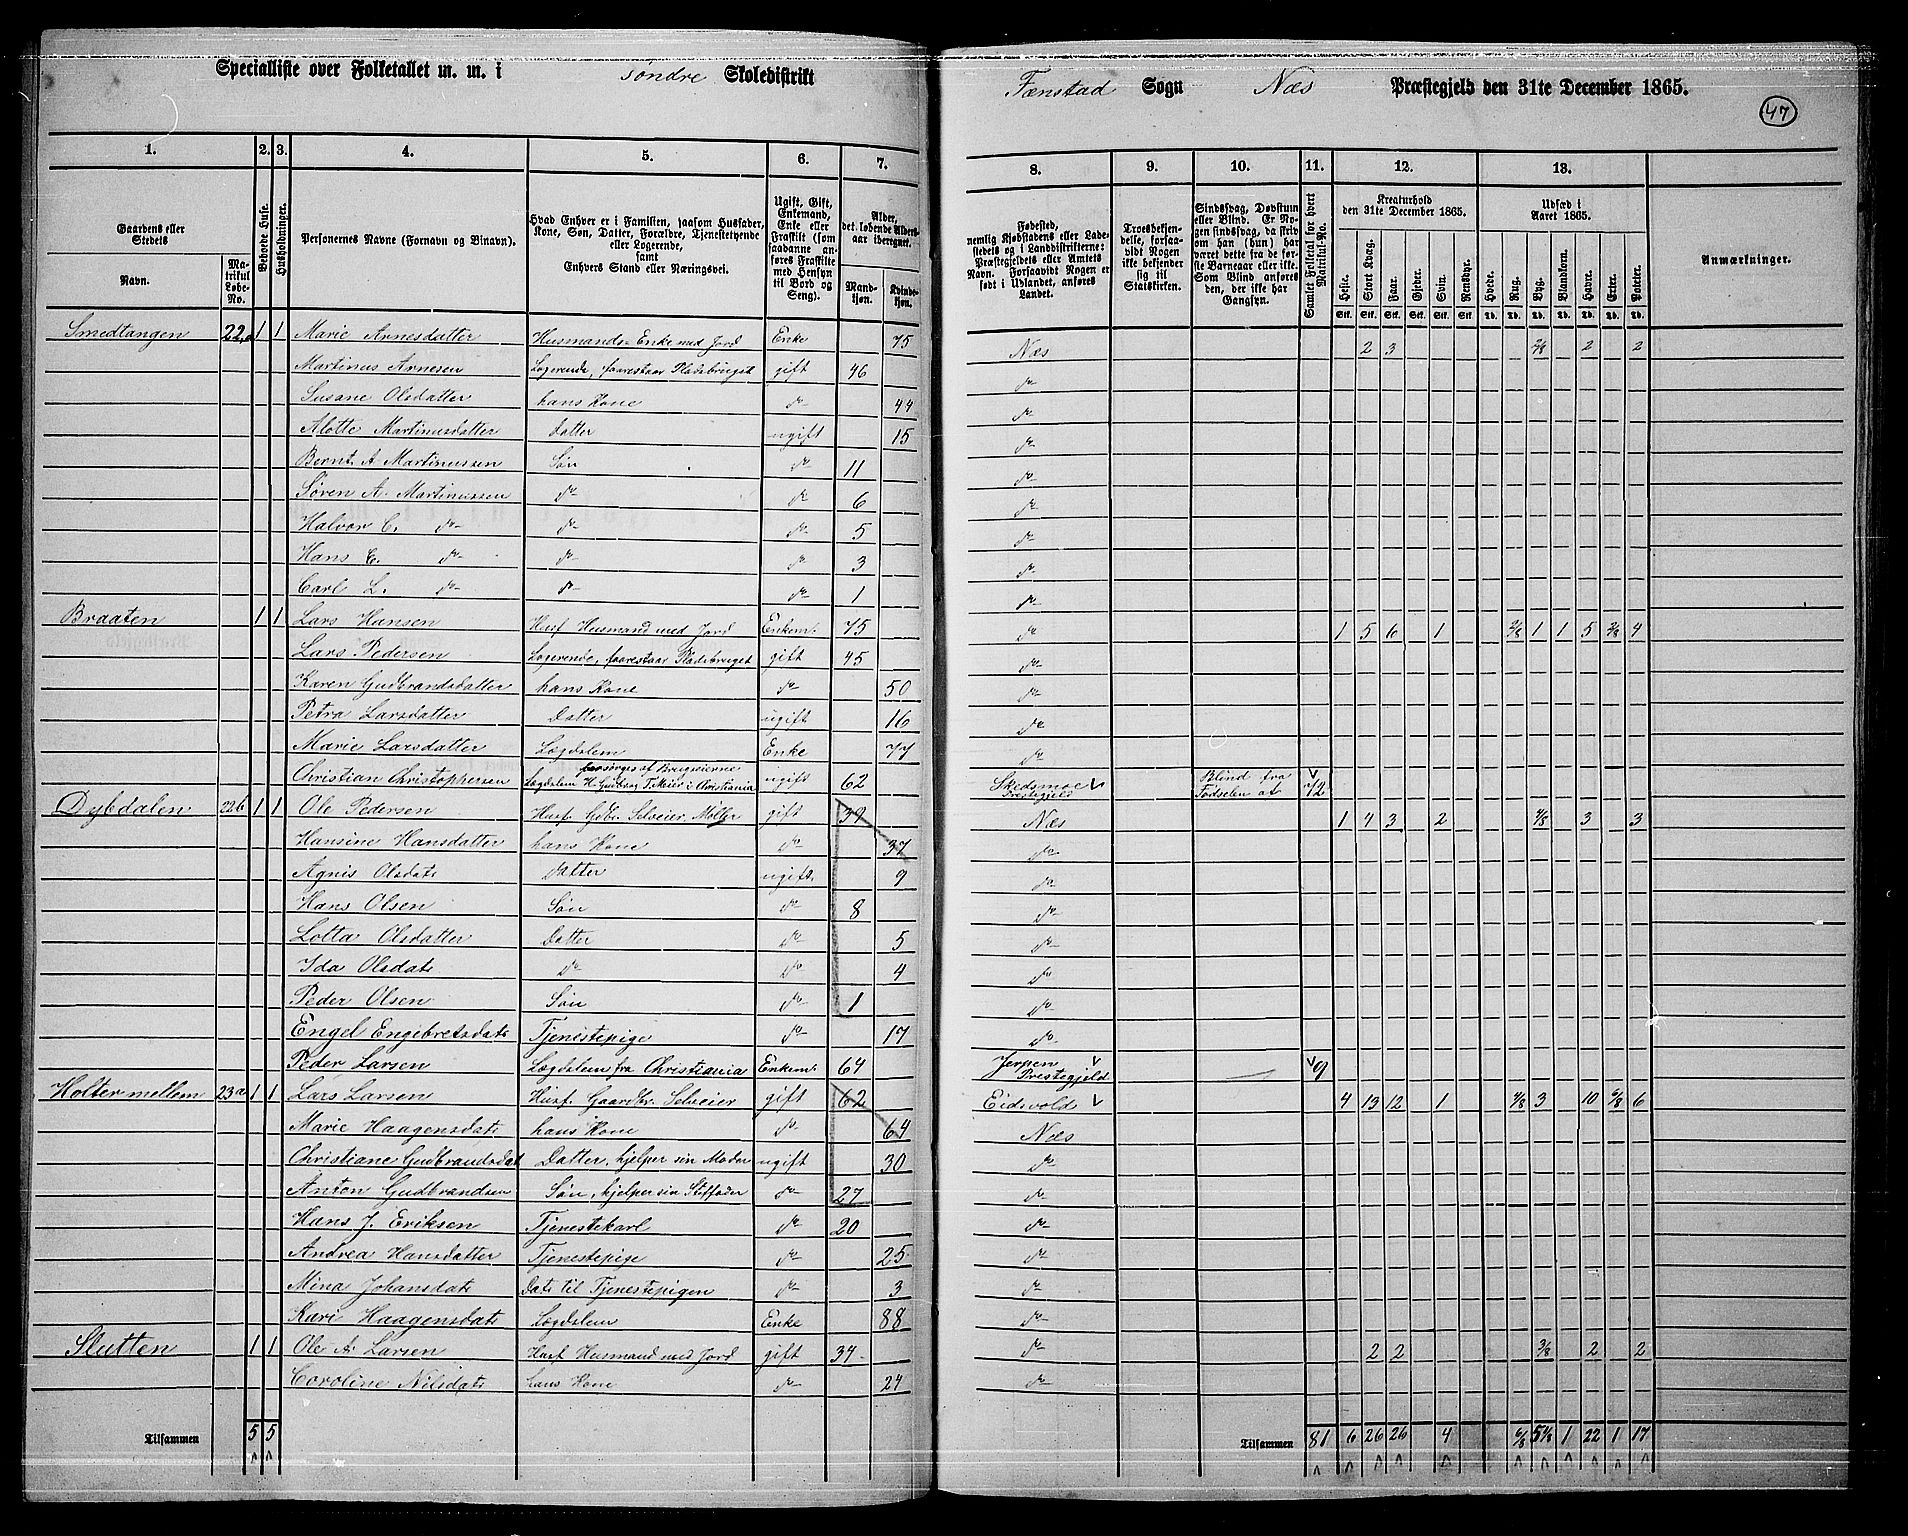 Specialliste over Folketallet m. m. i Tøndre Skoledistrikt Fænstad Sogn Næs Præstegjeld den 31te December 1865.
47
1. 2. 3. 4. 5. 6. 7. 8. 9. 10. 11. 12. 13.
Gaardens eller Stedets
Navn.
Matrikul Løbe-No.
Beboede Huse.
Husholdninger.
Personernes Navne (Fornavn og Binavn).
Hvad Enhver er i Familien, saasom Husfader, Kone, Søn, Datter, Forældre, Tjenestetyende eller Logerende, samt Enhvers Stand eller Næringsvei.
Ugift, Gift, Enkemand, Enke eller Fraskilt (som saadanne anføres Fraskilte med Hensyn til Bord og Seng).
Alder, det løbende Aldersaar iberegnet.
Mandkjøn. Kvindekjøn.
Fødested, nemlig Kjøbstadens eller Ladestedets og i Landdistrikterne: Præstegjeldets eller Amtets Navn. Forsaavidt Nogen er født i Udlandet, anføres Landet.
Troesbekjendelse, forsaavidt Nogen ikke bekjender sig til Statskirken.
Sindssvag, Døvstum eller Blind. Er Nogen sindssvag, da skriv om han (hun) har været dette fra de første Barneaar eller ikke. Som Blind anføres den, der ikke har Gangsyn.
Samlet Folketal for hvert Matrikul-No.
Kreaturhold den 31te December 1865.
Heste. Stort Kvæg. Faar. Gjeder. Svin. Rendyr.
Udsæd i Aaret 1865.
Hvede. Rug. Byg. Blandkorn. Havre. Erter. Poteter.
Anmærkninger.
Stk. Stk. Stk. Stk. Stk. Stk. Td. Td. Td. Td. Td. Td. Td.
Smedtangen 22a 1 1 Marie Arnesdatter Husmands-Enke med Jord Enke 75 Næs 2 3 2/8 2 2
Martinus Arnesen Logerende, forestaar Pladsbruget gift 46 do
Susane Olsdatter hans Kone do 44 do
Alotte Martinusdatter Datter ugift 15 do
Bernt A Martinussen Søn do 11 do
Søren A. Martinussen do do 6 do
Halvor C. do do do 5 do
Hans C. do do do 3 do
Carl L. do do do 1 do
Braaten 1 1 Lars Hansen Husf Husmand med Jord Enkem. 75 do 1 5 6 1 1 1 5 4
Lars Pedersen Logerende, forestaar Pladsbruget gift 45 do
Karen Gudbrandsdatter hans Kone do 50 do
Petra Larsdatter Datter ugift 16 do
Marie Larsdatter Lægdslem Enke 77 do
Christian Christophersen Lægdslem forsørges af Brugseierne H. Gudbrag T. Meier i Christiania ugift 62 Skedsmoe Prestegjeld Blind fra Fødselen af
Dybdalen 22b 1 1 Ole Pedersen Husf. Gdbr. Selveier, Møller gift 39 Næs 1 4 3 2 3 3
Hansine Hansdatter hans Kone do 37 do
Agnis Olsdatr Datter ugift. 9 do
Hans Olsen Søn do 8 do
Lotta Olsdatter Datter do 5 do
Ida Olsdatr do do 4 do
Peder Olsen Søn do 1 do
Engel Engebretsdatr Tjenestepige do 17 do
Peder Larsen Lægdslem fra Christiania Enkem. 64 Prestegjeld 9
Holter mellem 23a 1 1 Lars Larsen Husf. Gaardbr. Selveier gift 62 Eidsvold 4 13 12 1 3 10 6/8 6
Marie Haagensdatr hans Kone do 64 Næs
Christiane Gudbrandsdat Datter, hjelper sin Moder ugift 30 do
Anton Gudbrandsen Søn, hjelper sin Stiffader do 27 do
Hans J. Eriksen Tjenestekarl do 20 do
Andrea Hansdatter Tjenestepige do 25 do
Mina Johansdatr Datr til Tjenestepigen do 3 do
Kari Haagensdatr Lægdslem Enke 88 do
Slutten 1 1 Ole A. Larsen Husf Husmand med Jord gift 34 do 2 2 3/8 2 2
Coroline Nilsdatr hans Kone do 24 do
Tilsammen 5 5 Tilsammen 81 6 26 26 4 6/8 1 22 1 17